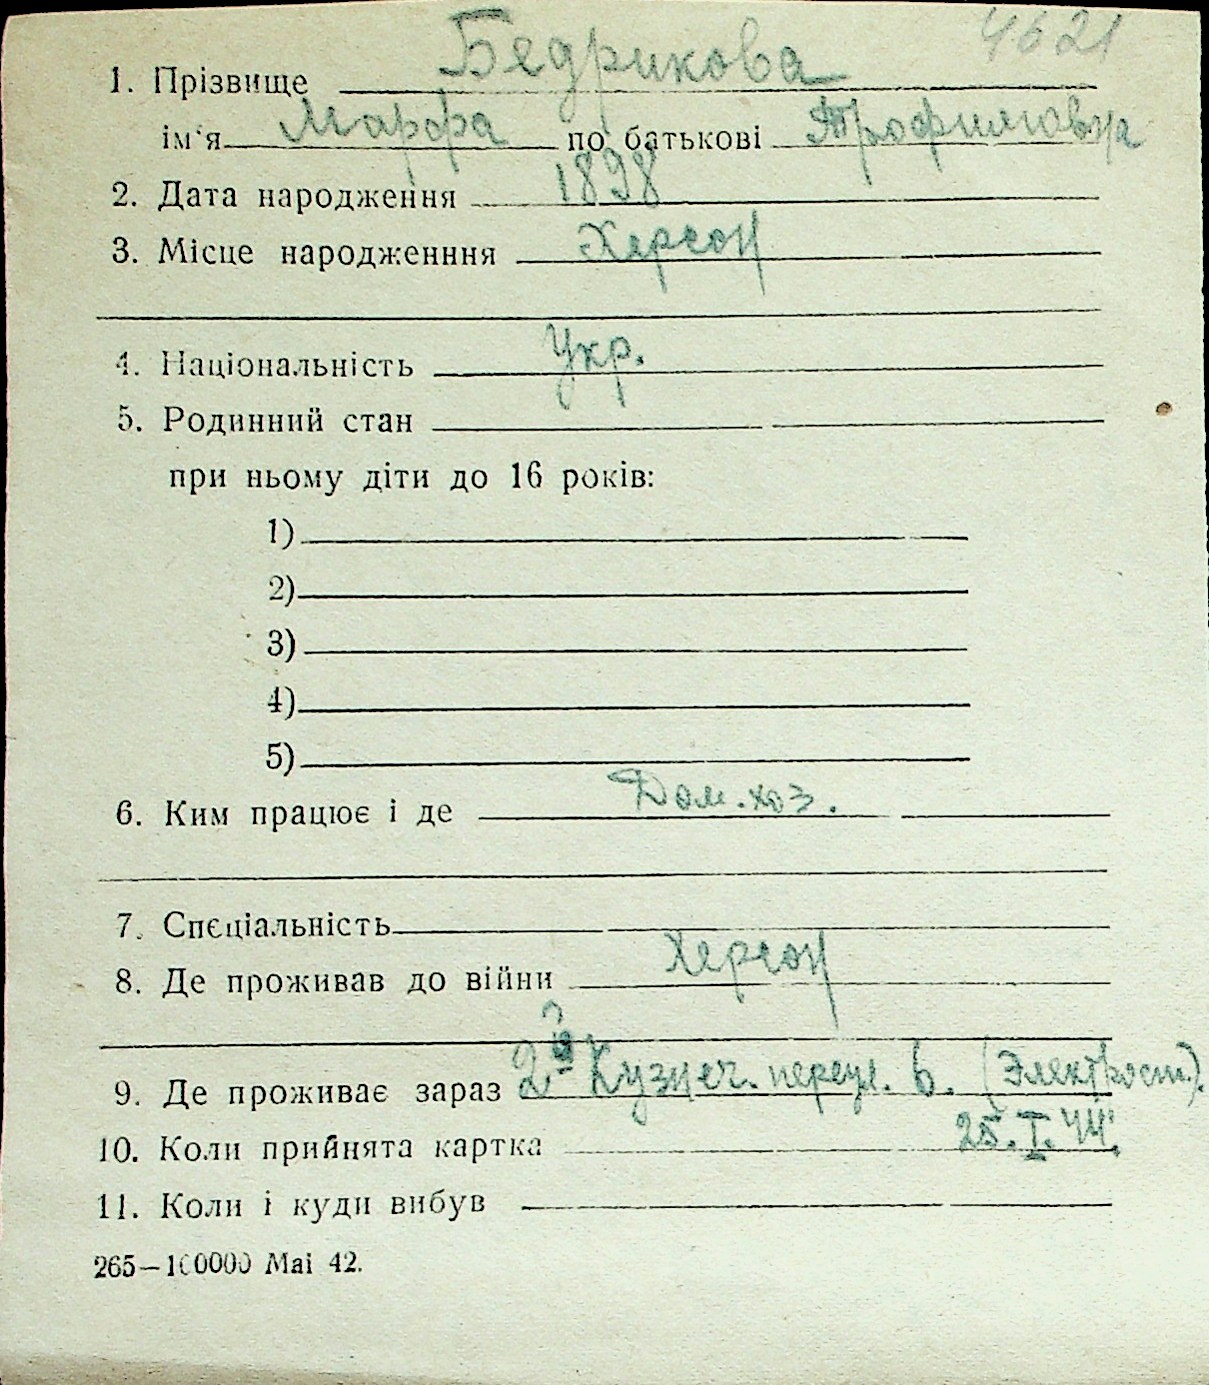 4621
1. Прізвище Бедрикова
ім'я Марфа по батькові Трофимовна
2. Дата народження 1898
3. Місце народженння Херсон
4. Національність Укр.
5. Родинний стан
при ньому діти до 16 років:
1)
2)
3)
4)
5)
6. Ким працює і де Дом.хоз.
7. Спєціальність
8. Де проживав до війни Херсон
9. Де проживає зараз 2й Кузнеч. переул. 6. (Электрост.).
10. Коли прийнята картка 25.I.44.
11. Коли і куди вибув
265—100000 Mai 42.